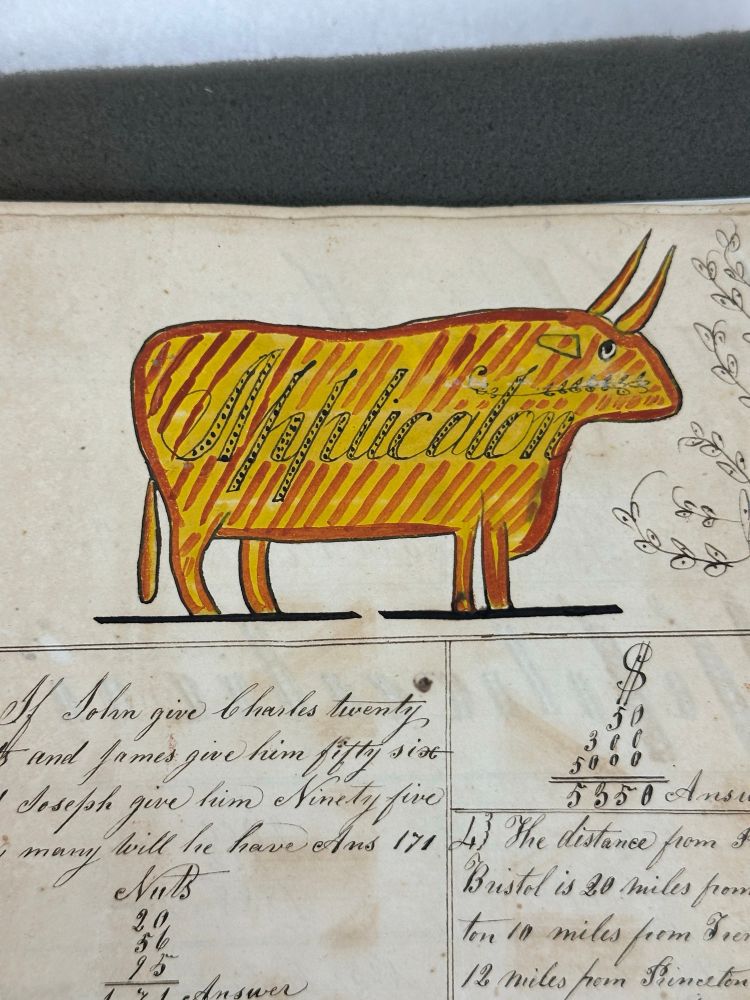 Application
If John give Charles twenty
and James give him fifty six
Joseph give him Ninety five
many will he have Ans 171
Nuts
20
56
95
171 Answer
$
50
300
5000
5350
4} The distance from
Bristol is 20 miles from
ton 10 miles from
12 miles from Princeton